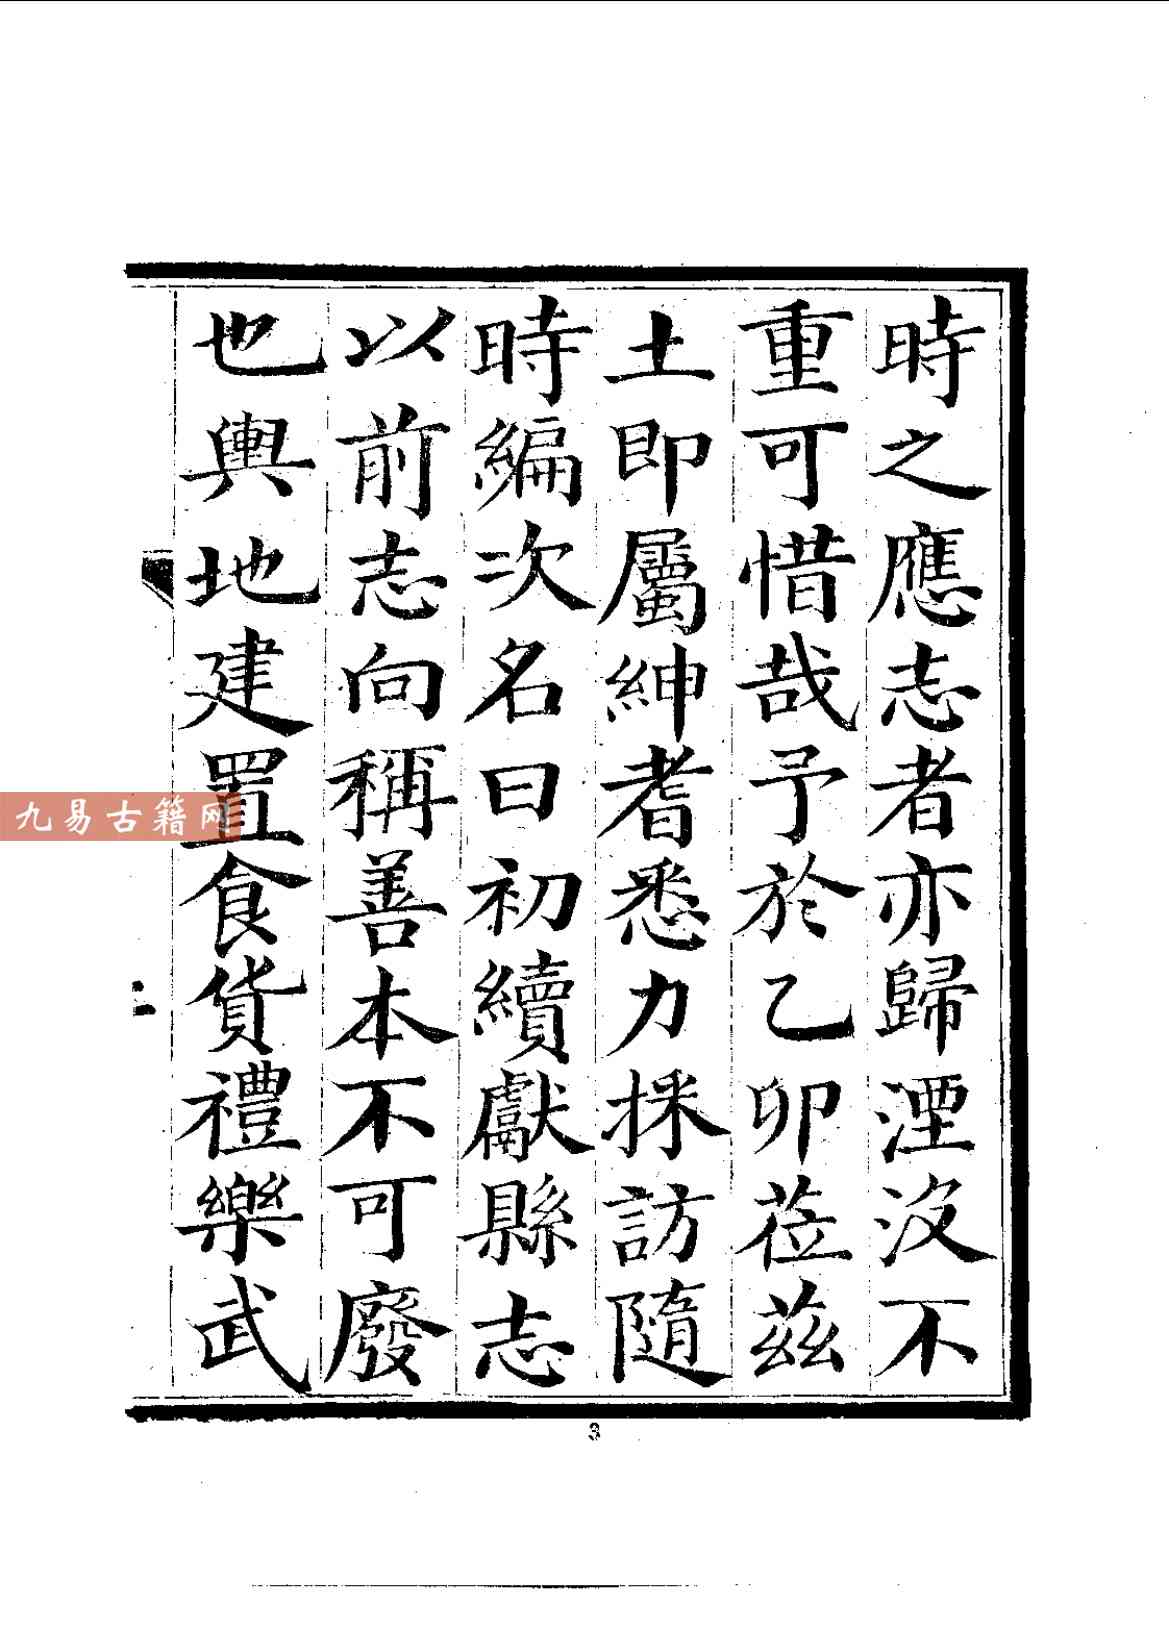 時之應志者亦歸湮沒不
重可惜哉予於乙卯莅茲
土即屬紳耆悉力採訪隨
時編次名曰初續獻縣志
以前志向稱善本不可廢
也輿地建置食貨禮樂武
九易古籍网
3